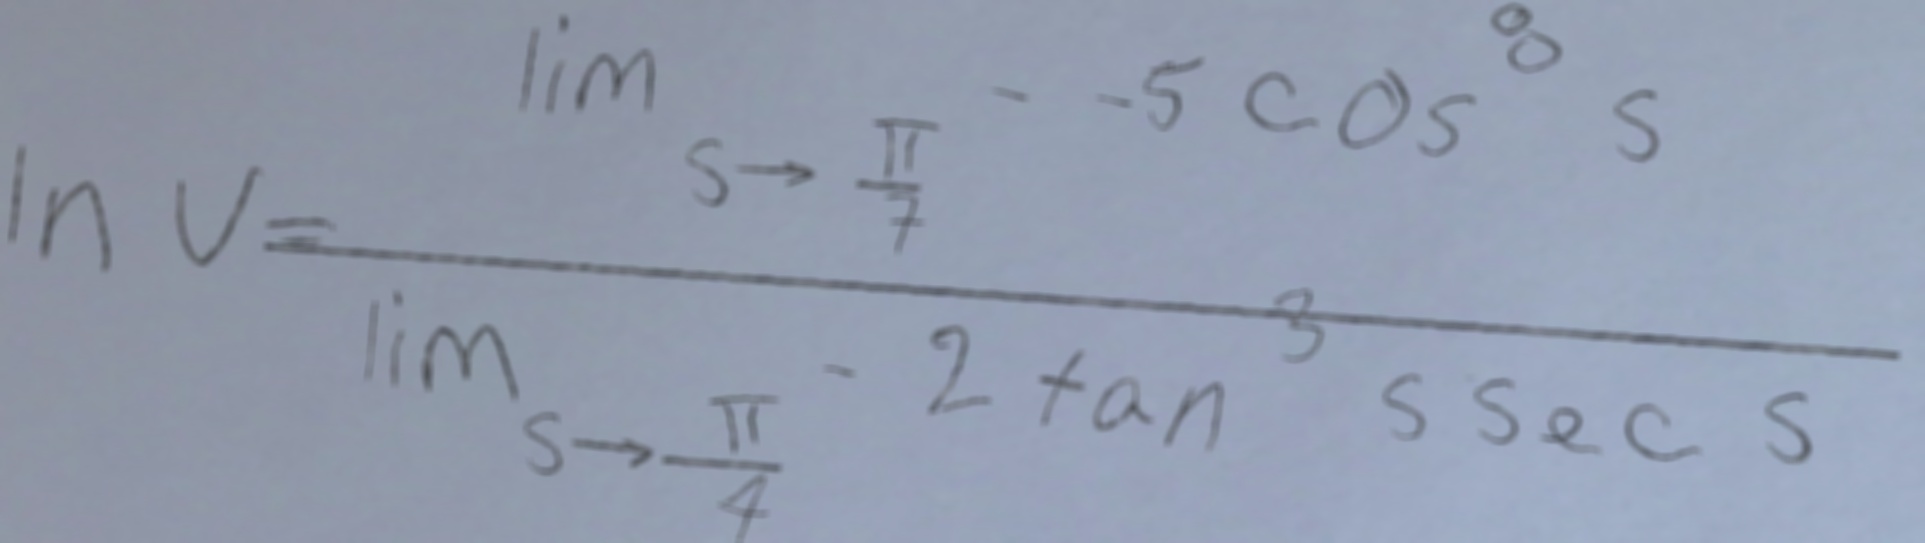 \ln v = \frac{\lim_{s \to \frac{\pi}{7}} - -5 \cos^8 s}{\lim_{s \to \frac{\pi}{4}} - 2 \tan^3 s \sec s}